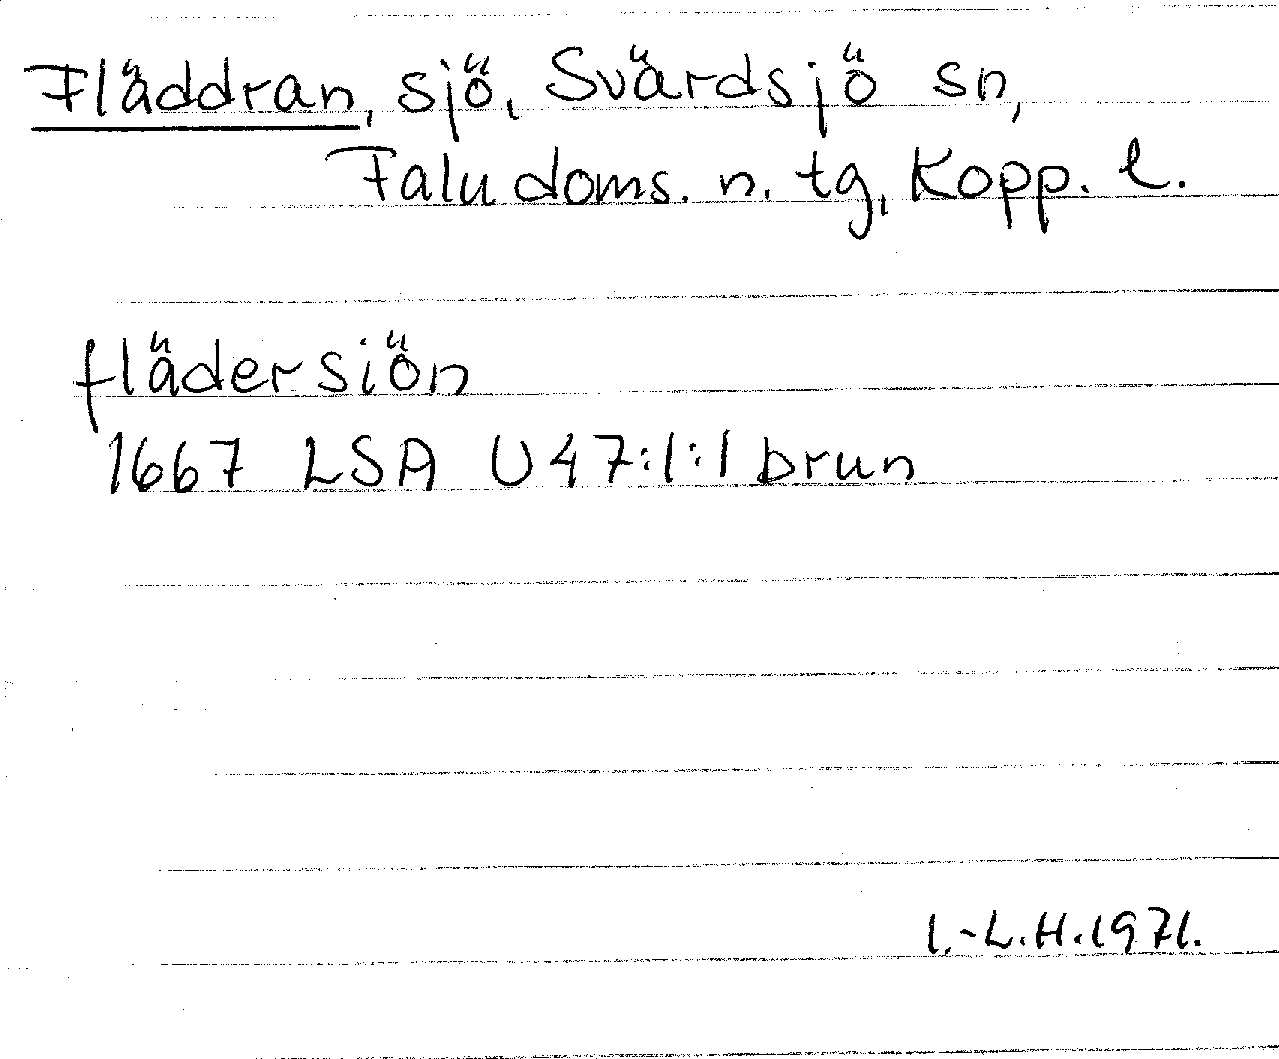 Fläddran, sjö, Svärdsjö sn,
Falu doms. n. tg, Kopp. l.
flädersiön
1667 LSA U47:1:1 brun
I.-L.H.1971.